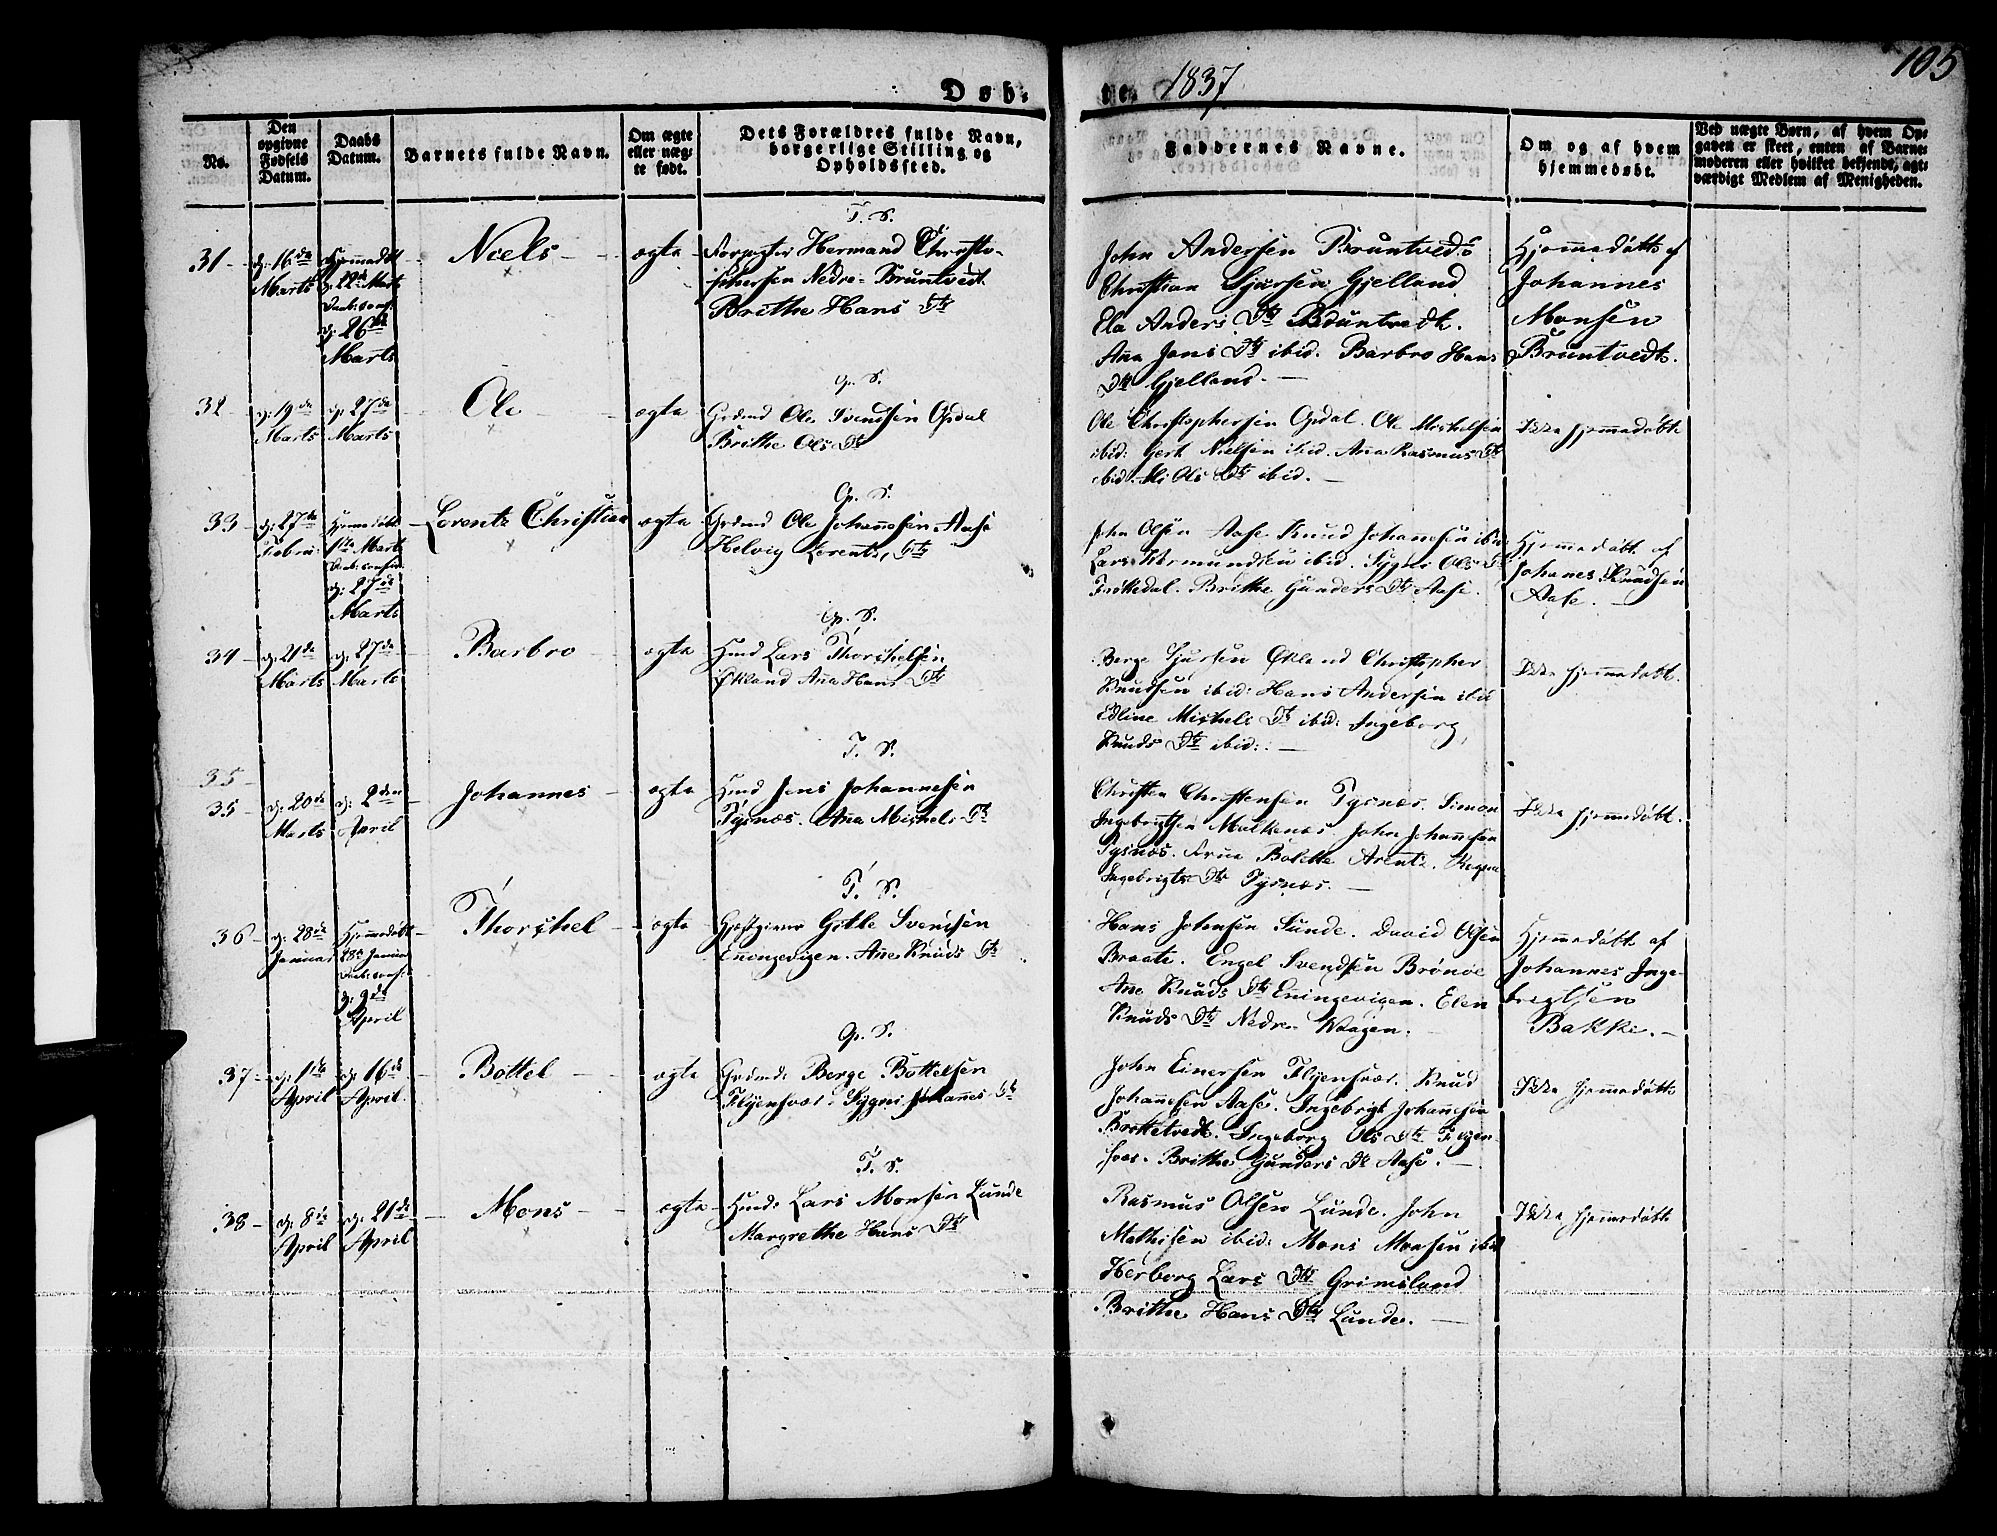 105
Døb-
te. 1837
No.
Den
opgivne
Fødsels
Datum.
Daabs
Datum.
Barnets fulde Navn.
Om ægte
eller uæg-
te født.
Dets Forældres fulde Navn,
borgerlige Stilling og
Opholdssted.
Faddernes Navne.
Om og af hvem
hjemmedøbt.
Ved uægte Børn, af hvem Op-
gaven er skeet, enten af Barne-
moderen eller hvilket bekjendt, agt-
værdigt Medlem af Menigheden.
31
d: 16de
Marts
Hjemmedøbt
d: 22de Marts
Daab: conf:
d: 26de
Marts
Niels
ægte
T. S.
Forpagter Hermand Christo-
phersen Nedre-Bruntvedt
Brithe Hans Dtr
John Andersen Bruntvedt
Christian Sjursen Gjelland
Ela Anders Dtr Bruntvedt.
Aña Jans Dtr ibid. Barbro Hans
Dtr Gjelland.
Hjemmedøbt af
Johannes
Monsen
Bruntvedt.
32
d: 19de
Marts
d: 27de
Marts
Ole
ægte
Op. S.
Grdmd Ole Svendsen Opdal
Brithe Ols Dtr
Ole Christophersen Opdal. Ole Michelsen
ibid: Gert Nielsen ibid. Aña Rasmus Dtr
ibid. Ols Dtr ibid.
Ikke hjemmedøbt
33
d: 27de
Febru:
Hjemmedøbt
1ste Marts
Daab: conf:
d: 27de
Marts
Lorentz Christian
ægte
Op. S.
Grdmd Ole Johañesen Aase
Helvig Lorents Dtr
John Olsen Aase Knud Johañesen ibid:
Lars Ols Dtr
Brithe Gunders Dtr Aase.
Hjemmedøbt af
Johañes Knudsen
Aase.
34
d: 21de
Marts
d: 27de
Marts
Barbro
ægte
Op. S.
Hmd Lars Thorchelsen
Økland Aña Hans Dtr
Berge Sjursen Økland Christopher
Knudsen ibid: Hans Andersen ibid
Edline Michels Dtr ibid: Ingeborg
Knuds Dtr ibid:
Ikke hjemmedøbt.
35
35
d: 20de
Marts
d: 2den
April
Johannes
ægte
T. S.
Hmd Jens Johannesen
Tysnæs. Aña Michels Dtr
Christen Christensen Tysnæs. Simon
Ingebrigtsen John Johañesen
Tysnæs. Frue Bolette Arentz.
Ingebrigts Dtr Tysnæs.
Ikke hjemmedøbt.
36
d: 28de
Januar
Hjemmedøbt
28de Januar
Daab: conf:
d: 2de
April
Thorchel
ægte
T. S.
Gjæstgiver Gitle Svendsen
Eñingevigen. Ane Knuds Dtr
Hans Johnsen Sunde. David Olsen
Braate. Engel Svendsen Brønøe
Ane Knuds Dtr Eningevigen. Elen
Knuds Dtr Nedre Waagen.
Hjemmedøbt af
Johannes Inge-
bregtsen
Bakke.
37
d: 1ste
April
d: 16de
April
Bottel
ægte
Op. S.
Grdmd: Berge Bottelsen
Flyensvær. Sygni Johañes Dtr
John Einersen Flyensvær. Knud
Johañesen Aase. Ingebrigt Johañesen
Brøttetvedt. Ingeborg Ols Dtr Flyen-
svær. Brithe Gunders Dtr Aase.
Ikke hjemmedøbt
38
d: 8de
April
d: 21de
April
Mons
ægte
T. S.
Hmd: Lars Monsen Lunde
Margrethe Hans Dtr
Rasmus Olsen Lunde. John
Mathisen ibid: Mons Monsen ibid
Herborg Lars Dtr Grimsland
Brithe Hans Dtr Lunde.
Ikke hjemmedøbt